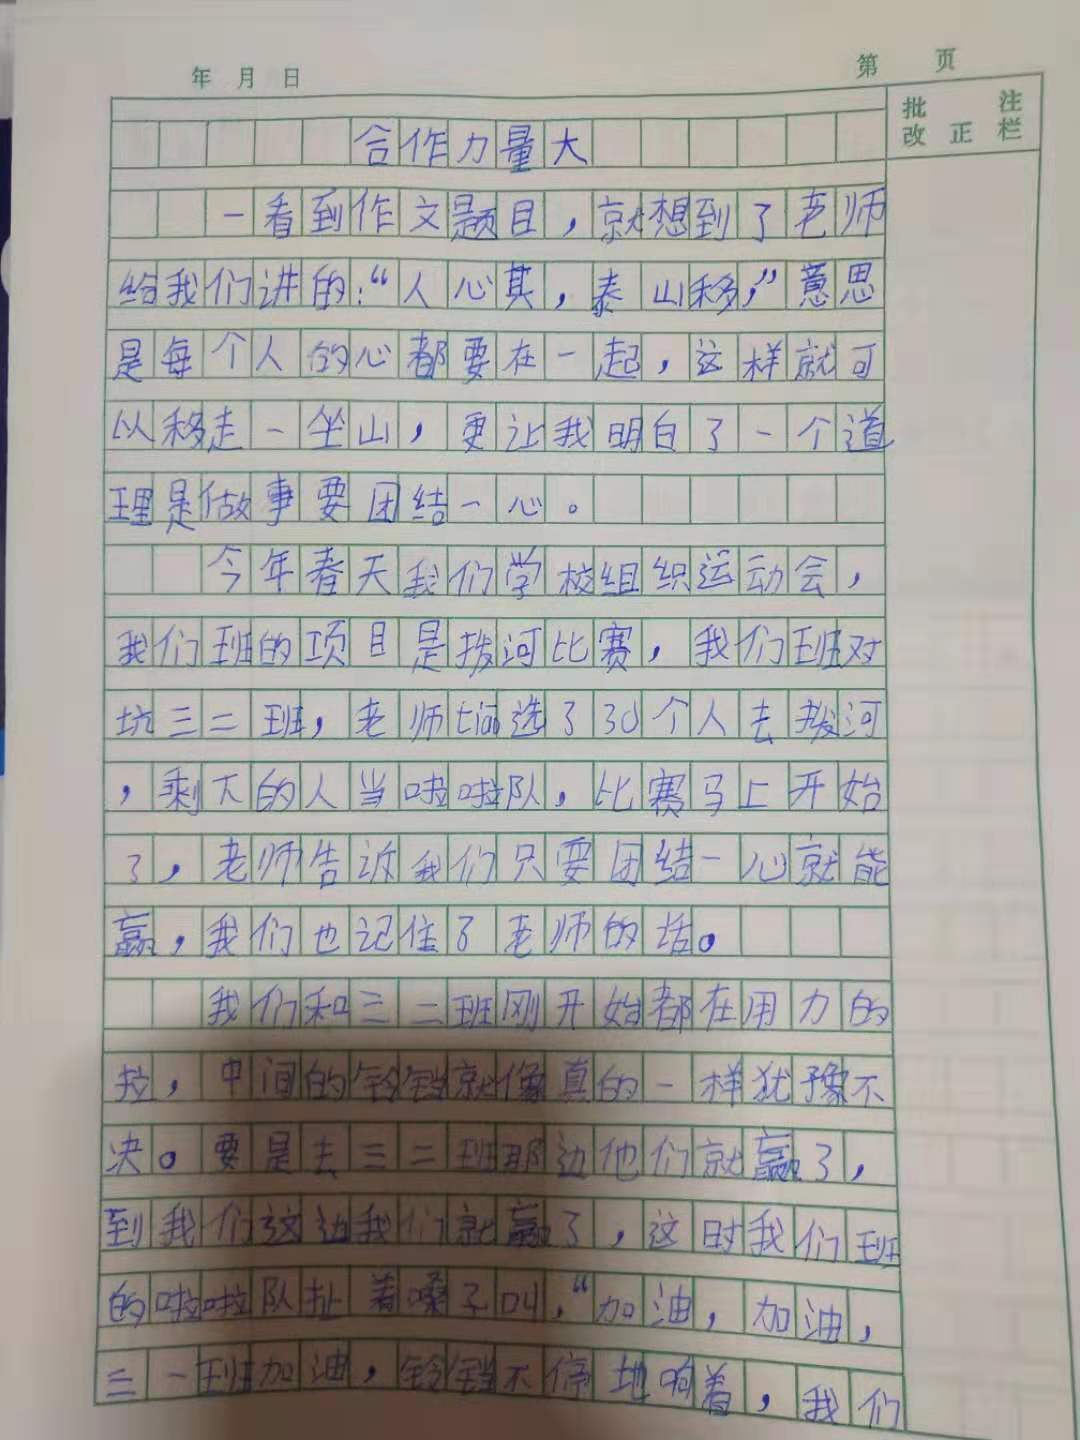 年 月 日
第 页
批 注
改 正 栏
合作力量大
一看到作文题目，就想到了老师
给我们讲的：“人心其，泰山移，”意思
是每个人的心都要在一起，这样就可
以移走一坐山，更让我明白了一个道
理是做事要团结一心。
今年春天我们学校组织运动会，
我们班的项目是拨河比赛，我们班对
坑三二班，老师选了30个人去拨河
，剩下的人当啦啦队，比赛马上开始
了，老师告诉我们只要团结一心就能
赢，我们也记住了老师的话。
我们和三二班刚开始都在用力的
拉，中间的铃铛就像真的一样犹豫不
决。要是去三二班那边他们就赢了，
到我们这边我们就赢了，这时我们班
的啦啦队扯着嗓子叫，“加油，加油，
三一班加油，铃铛不停地响着，我们